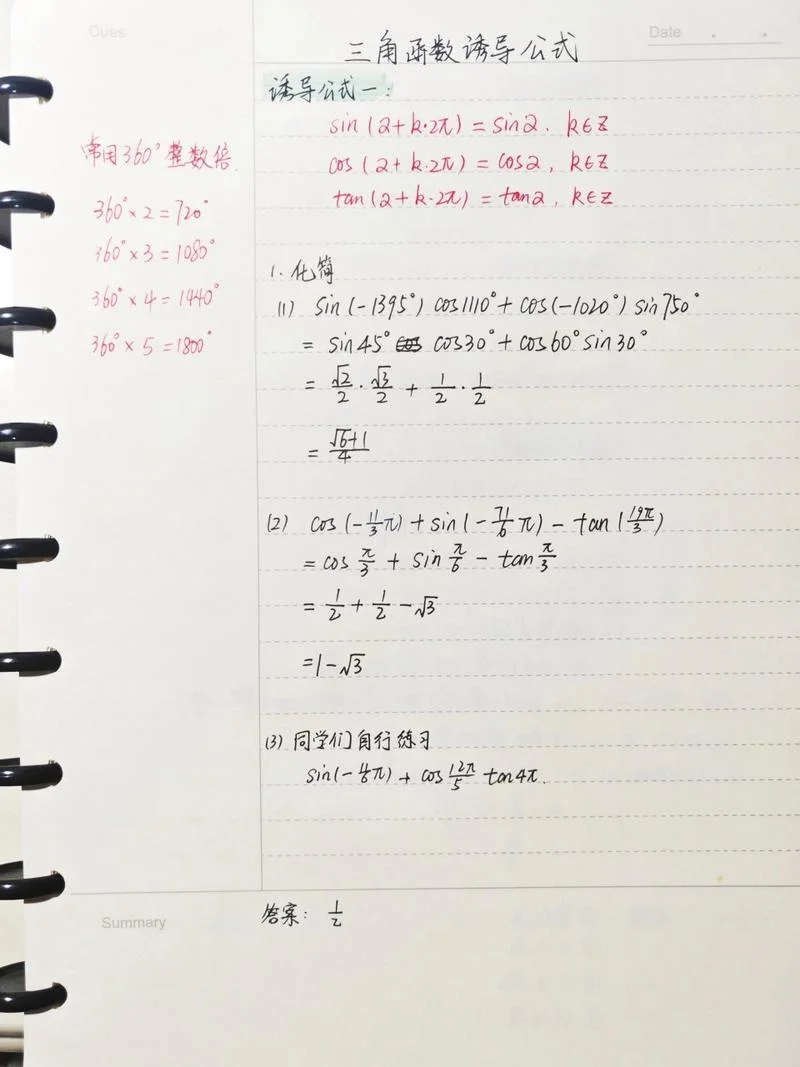 Cues
Date
三角函数诱导公式
诱导公式一:
sin(2+k·2π)=sin2. k∈Z
cos(2+k·2π)=cos2, k∈Z
tan(2+k·2π)=tan2, k∈Z
常用360°整数倍.
360°×2=720°
360°×3=1080°
360°×4=1440°
360°×5=1800°
1. 化简
(1) sin(-1395°) cos1110°+cos(-1020°) sin750°
= sin45° cos30°+cos60°sin30°
= √2/2·√3/2+1/2·1/2
= √6+1/4
(2) cos(-11/3π)+sin(-71/6π)-tan(19π/3)
= cosπ/3+sinπ/6-tanπ/3
= 1/2+1/2-√3
=1-√3
(3) 同学们自行练习
sin(-11/6π)+cos12π/5 tan4π.
Summary
答案: 1/2